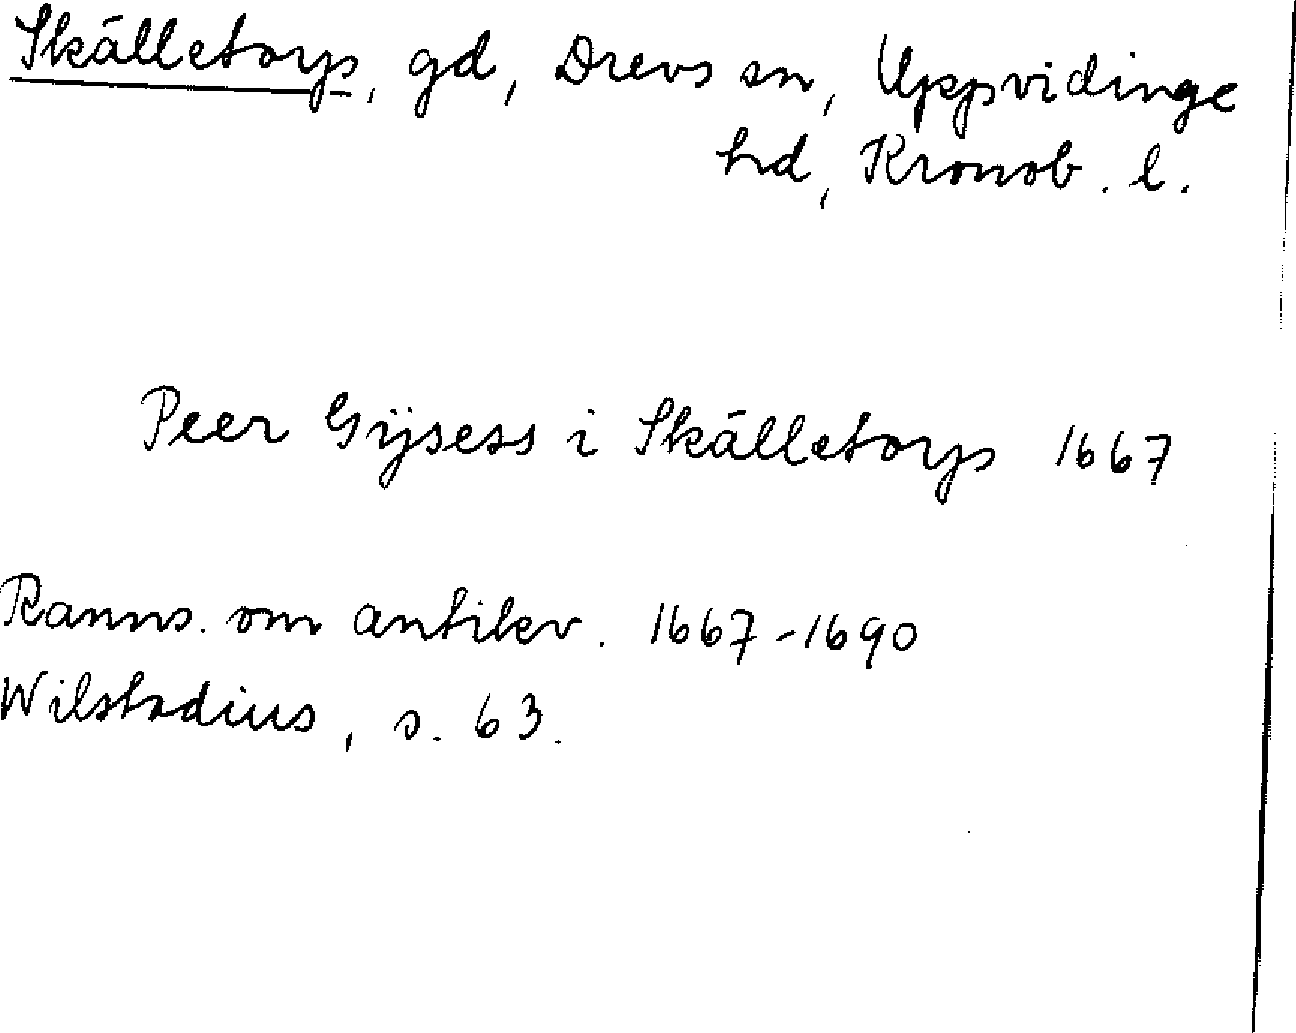 Skälletorp, gd, Drevs sn, Uppvidinge
hd, Kronob. l.
Peer Gÿsess i Skälletorp 1667
Ranns. om antikv. 1667-1690
Wilstadius, s. 63.